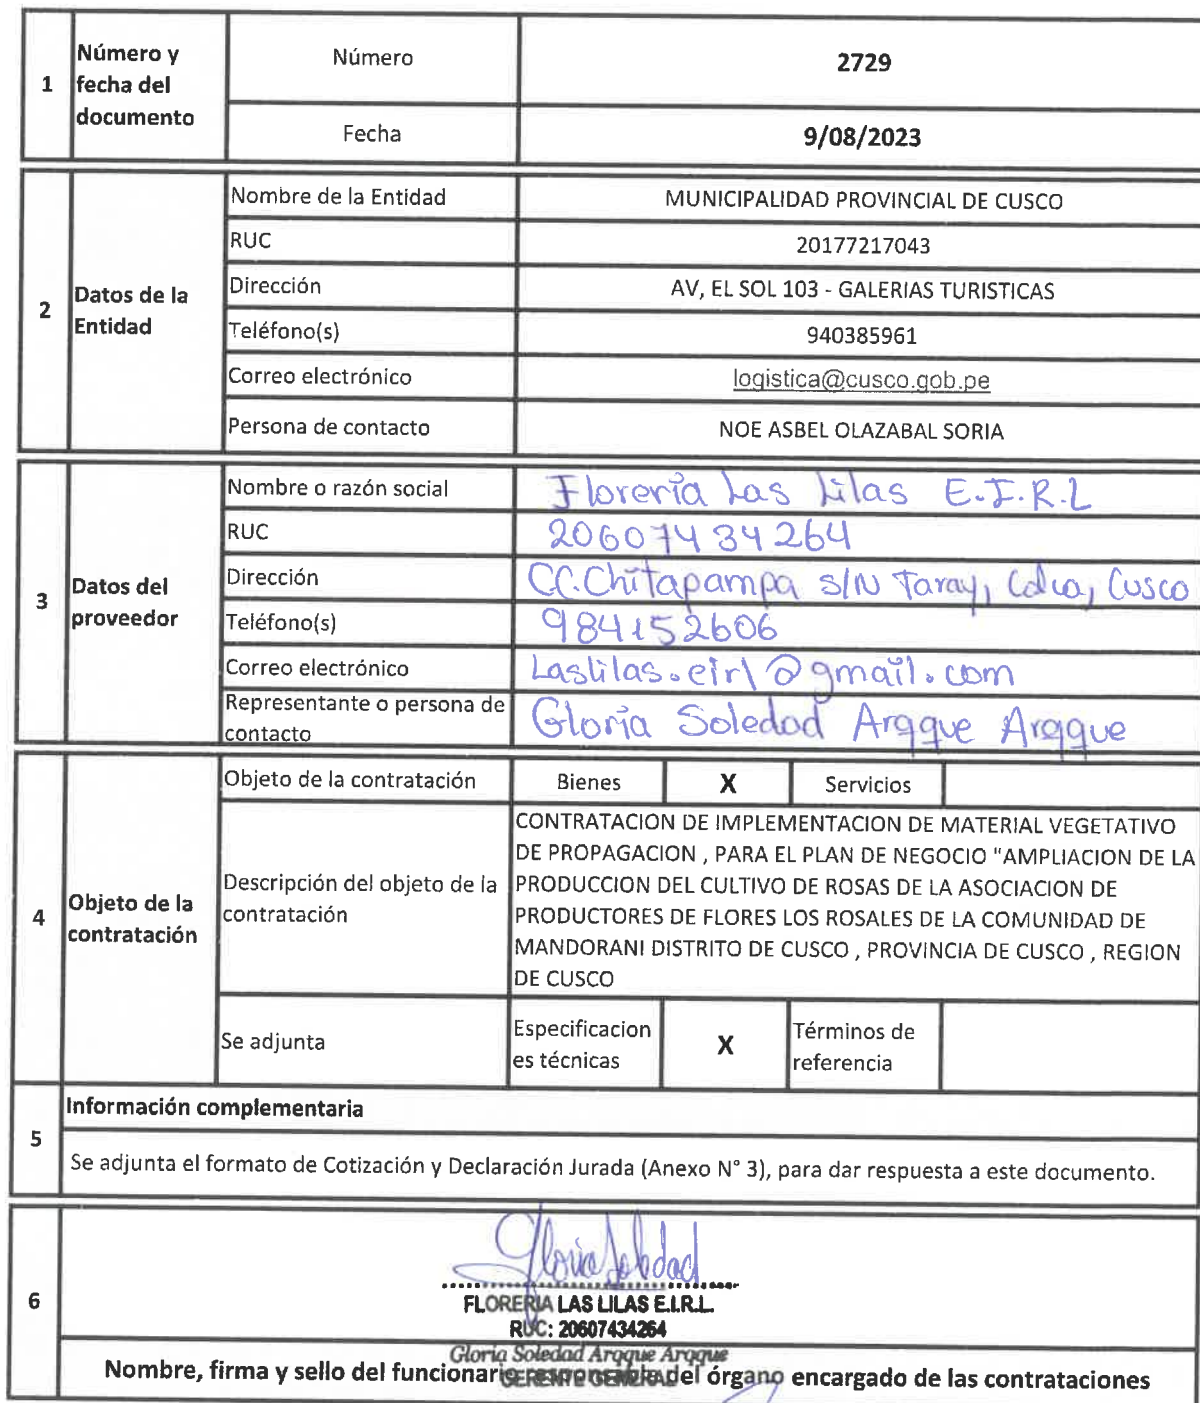 1 Número y fecha del documento
Número 2729
Fecha 9/08/2023
2 Datos de la Entidad
Nombre de la Entidad MUNICIPALIDAD PROVINCIAL DE CUSCO
RUC 20177217043
Dirección AV, EL SOL 103 - GALERIAS TURISTICAS
Teléfono(s) 940385961
Correo electrónico logistica@cusco.gob.pe
Persona de contacto NOE ASBEL OLAZABAL SORIA
3 Datos del proveedor
Nombre o razón social Florería Las Lilas E.I.R.L
RUC 20607434264
Dirección CC.Chitapampa S/N Taray, Calca, Cusco
Teléfono(s) 984152606
Correo electrónico Laslilas.eirl@gmail.com
Representante o persona de contacto Gloria Soledad Arqque Arqque
4 Objeto de la contratación
Objeto de la contratación Bienes X Servicios
Descripción del objeto de la contratación
CONTRATACION DE IMPLEMENTACION DE MATERIAL VEGETATIVO
DE PROPAGACION , PARA EL PLAN DE NEGOCIO "AMPLIACION DE LA
PRODUCCION DEL CULTIVO DE ROSAS DE LA ASOCIACION DE
PRODUCTORES DE FLORES LOS ROSALES DE LA COMUNIDAD DE
MANDORANI DISTRITO DE CUSCO , PROVINCIA DE CUSCO , REGION
DE CUSCO
Se adjunta Especificacion es técnicas X Términos de referencia
5 Información complementaria
Se adjunta el formato de Cotización y Declaración Jurada (Anexo N° 3), para dar respuesta a este documento.
6
Gloria Soledad
FLORERIA LAS LILAS E.I.R.L.
RUC: 20607434264
Gloria Soledad Arqque Arqque
GERENTE GENERAL
Nombre, firma y sello del funcionario responsable del órgano encargado de las contrataciones